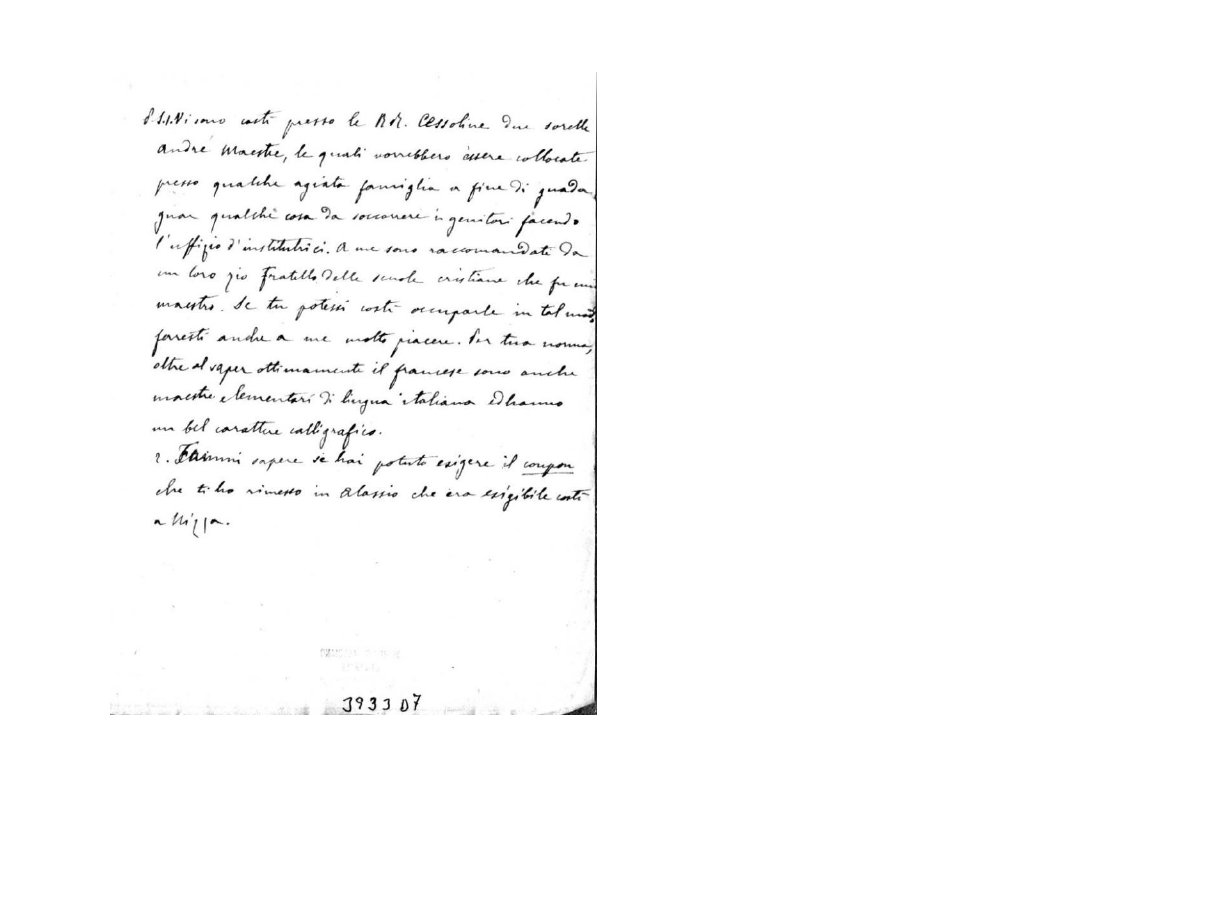 P.S.1. Vi sono costì presso le RR. Cessoline due sorelle
André Maestre, le quali vorrebbero essere collocate
presso qualche agiata famiglia a fine di guada
gnar qualche cosa da soccorrere i genitori facendo
l'uffizio d'institutrici. A me sono raccomandate da
un loro zio Fratello delle scuole cristiane che fu mio
maestro. Se tu potessi costì occuparle in tal modo
faresti anche a me molto piacere. Per tua norma,
oltre al saper ottimamente il francese sono anche
maestre elementari di lingua italiana ed hanno
un bel carattere calligrafico.
2. Fammi sapere se hai potuto esigere il coupon
che ti ho rimesso in Alassio che era esigibile costì
a Nizza.
3933 D7